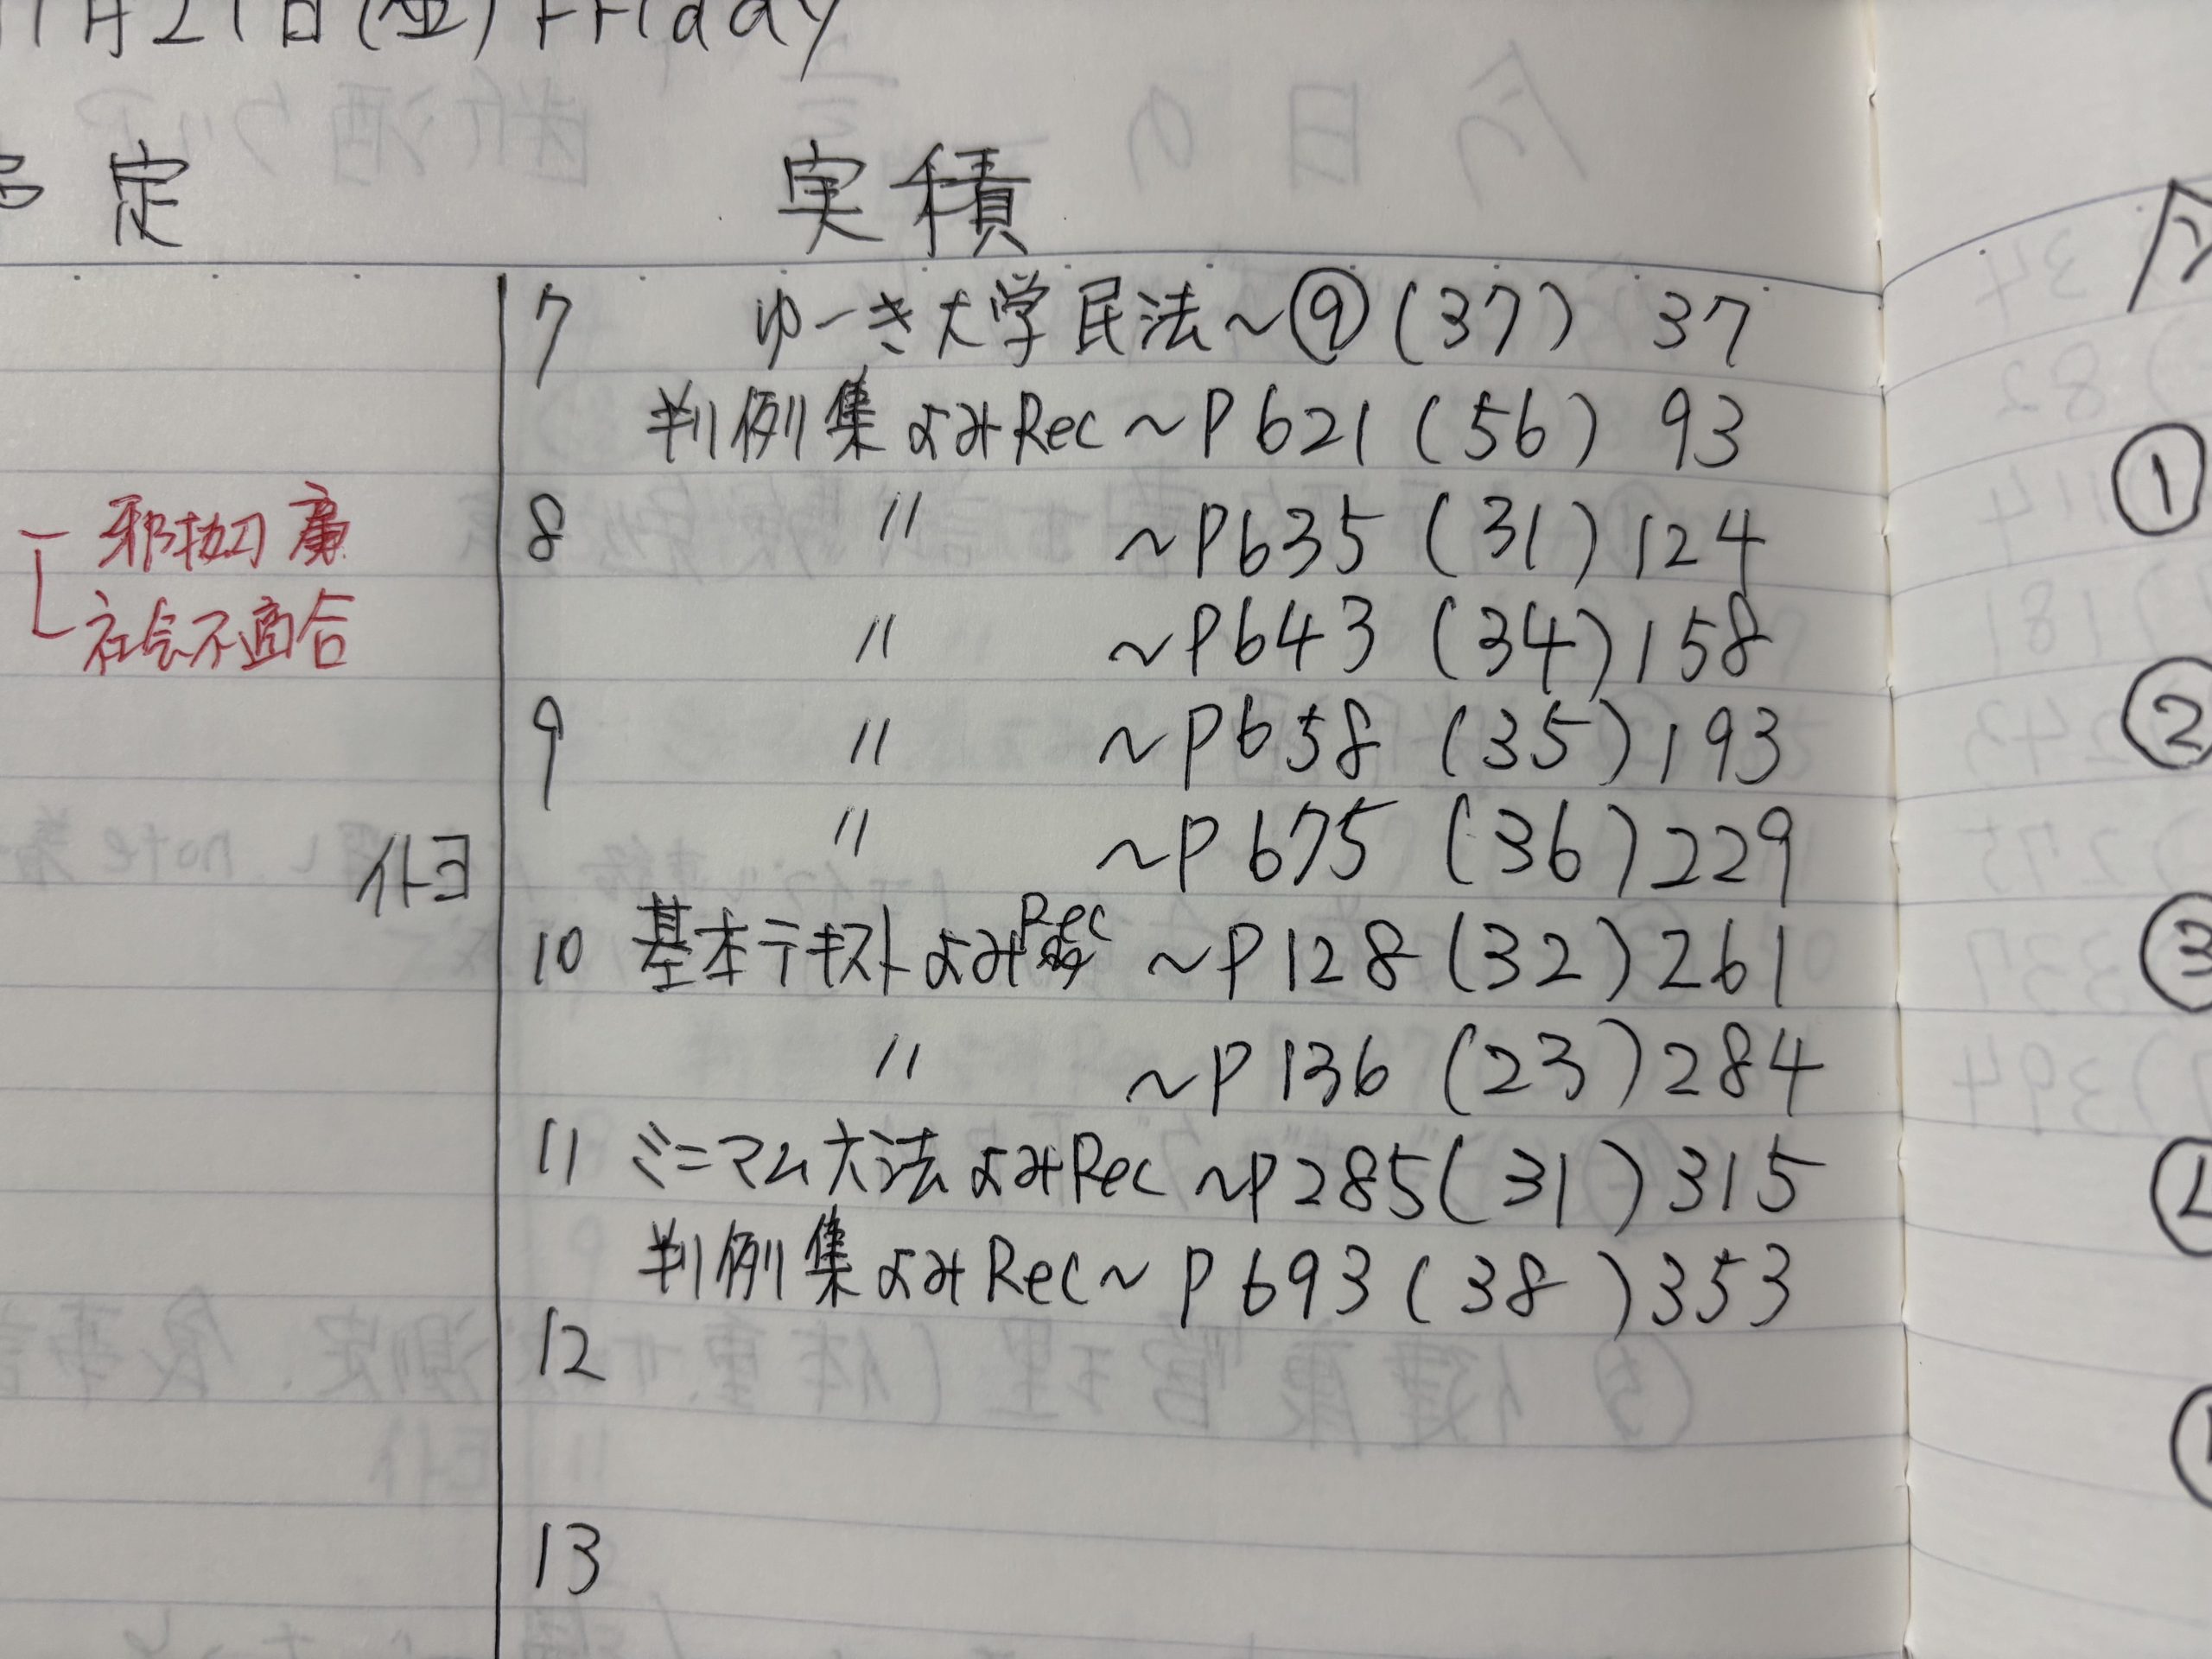 11月21日(金) Friday
予定 実積
7 ゆーき大学民法~⑨(37) 37
判例集よみRec ~P621 (56) 93
8 〃 ~P635 (31) 124
社会不適合
〃 ~P643 (34) 158
9 〃 ~P658 (35) 193
〃 ~P675 (36) 229
10 基本テキストよみRec ~P128 (32) 261
〃 ~P136 (23) 284
11 ミニマム六法よみRec ~P285 (31) 315
判例集よみRec ~P693 (38) 353
12
13
①
②
③